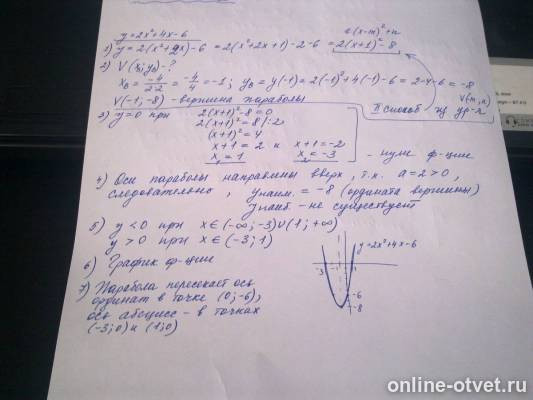 y=2x²+4x-6
a(x-m)²+n
1) y=2(x²+2x)-6=2(x²+2x+1)-2-6=2(x+1)²-8
2) V(x₀;y₀)-?
x_B=-4/2·2=-4/4=-1; y_B=y(-1)=2(-1)²+4(-1)-6=2-4-6=-8
V(-1;-8) - вершина параболы
V(m,n)
II способ из ур-я
3) y=0 при 2(x+1)²-8=0
2(x+1)²=8 |:2
(x+1)²=4
x+1=2 и x+1=-2
x₁=1 x₂=-3 - нули ф-ции
4) Оси параболы направлены вверх, т.к. a=2>0,
следовательно, yнаим.=-8 (ордината вершины)
yнаиб - не существует
5) y<0 при x∈(-∞;-3)∪(1;+∞)
y>0 при x∈(-3;1)
6) График ф-ции
y=2x²+4x-6
-3 -1 1
-6
-8
7) Парабола пересекает ось
ординат в точке (0;-6),
ось абсцисс - в точках
(-3;0) и (1;0)
online-otvet.ru